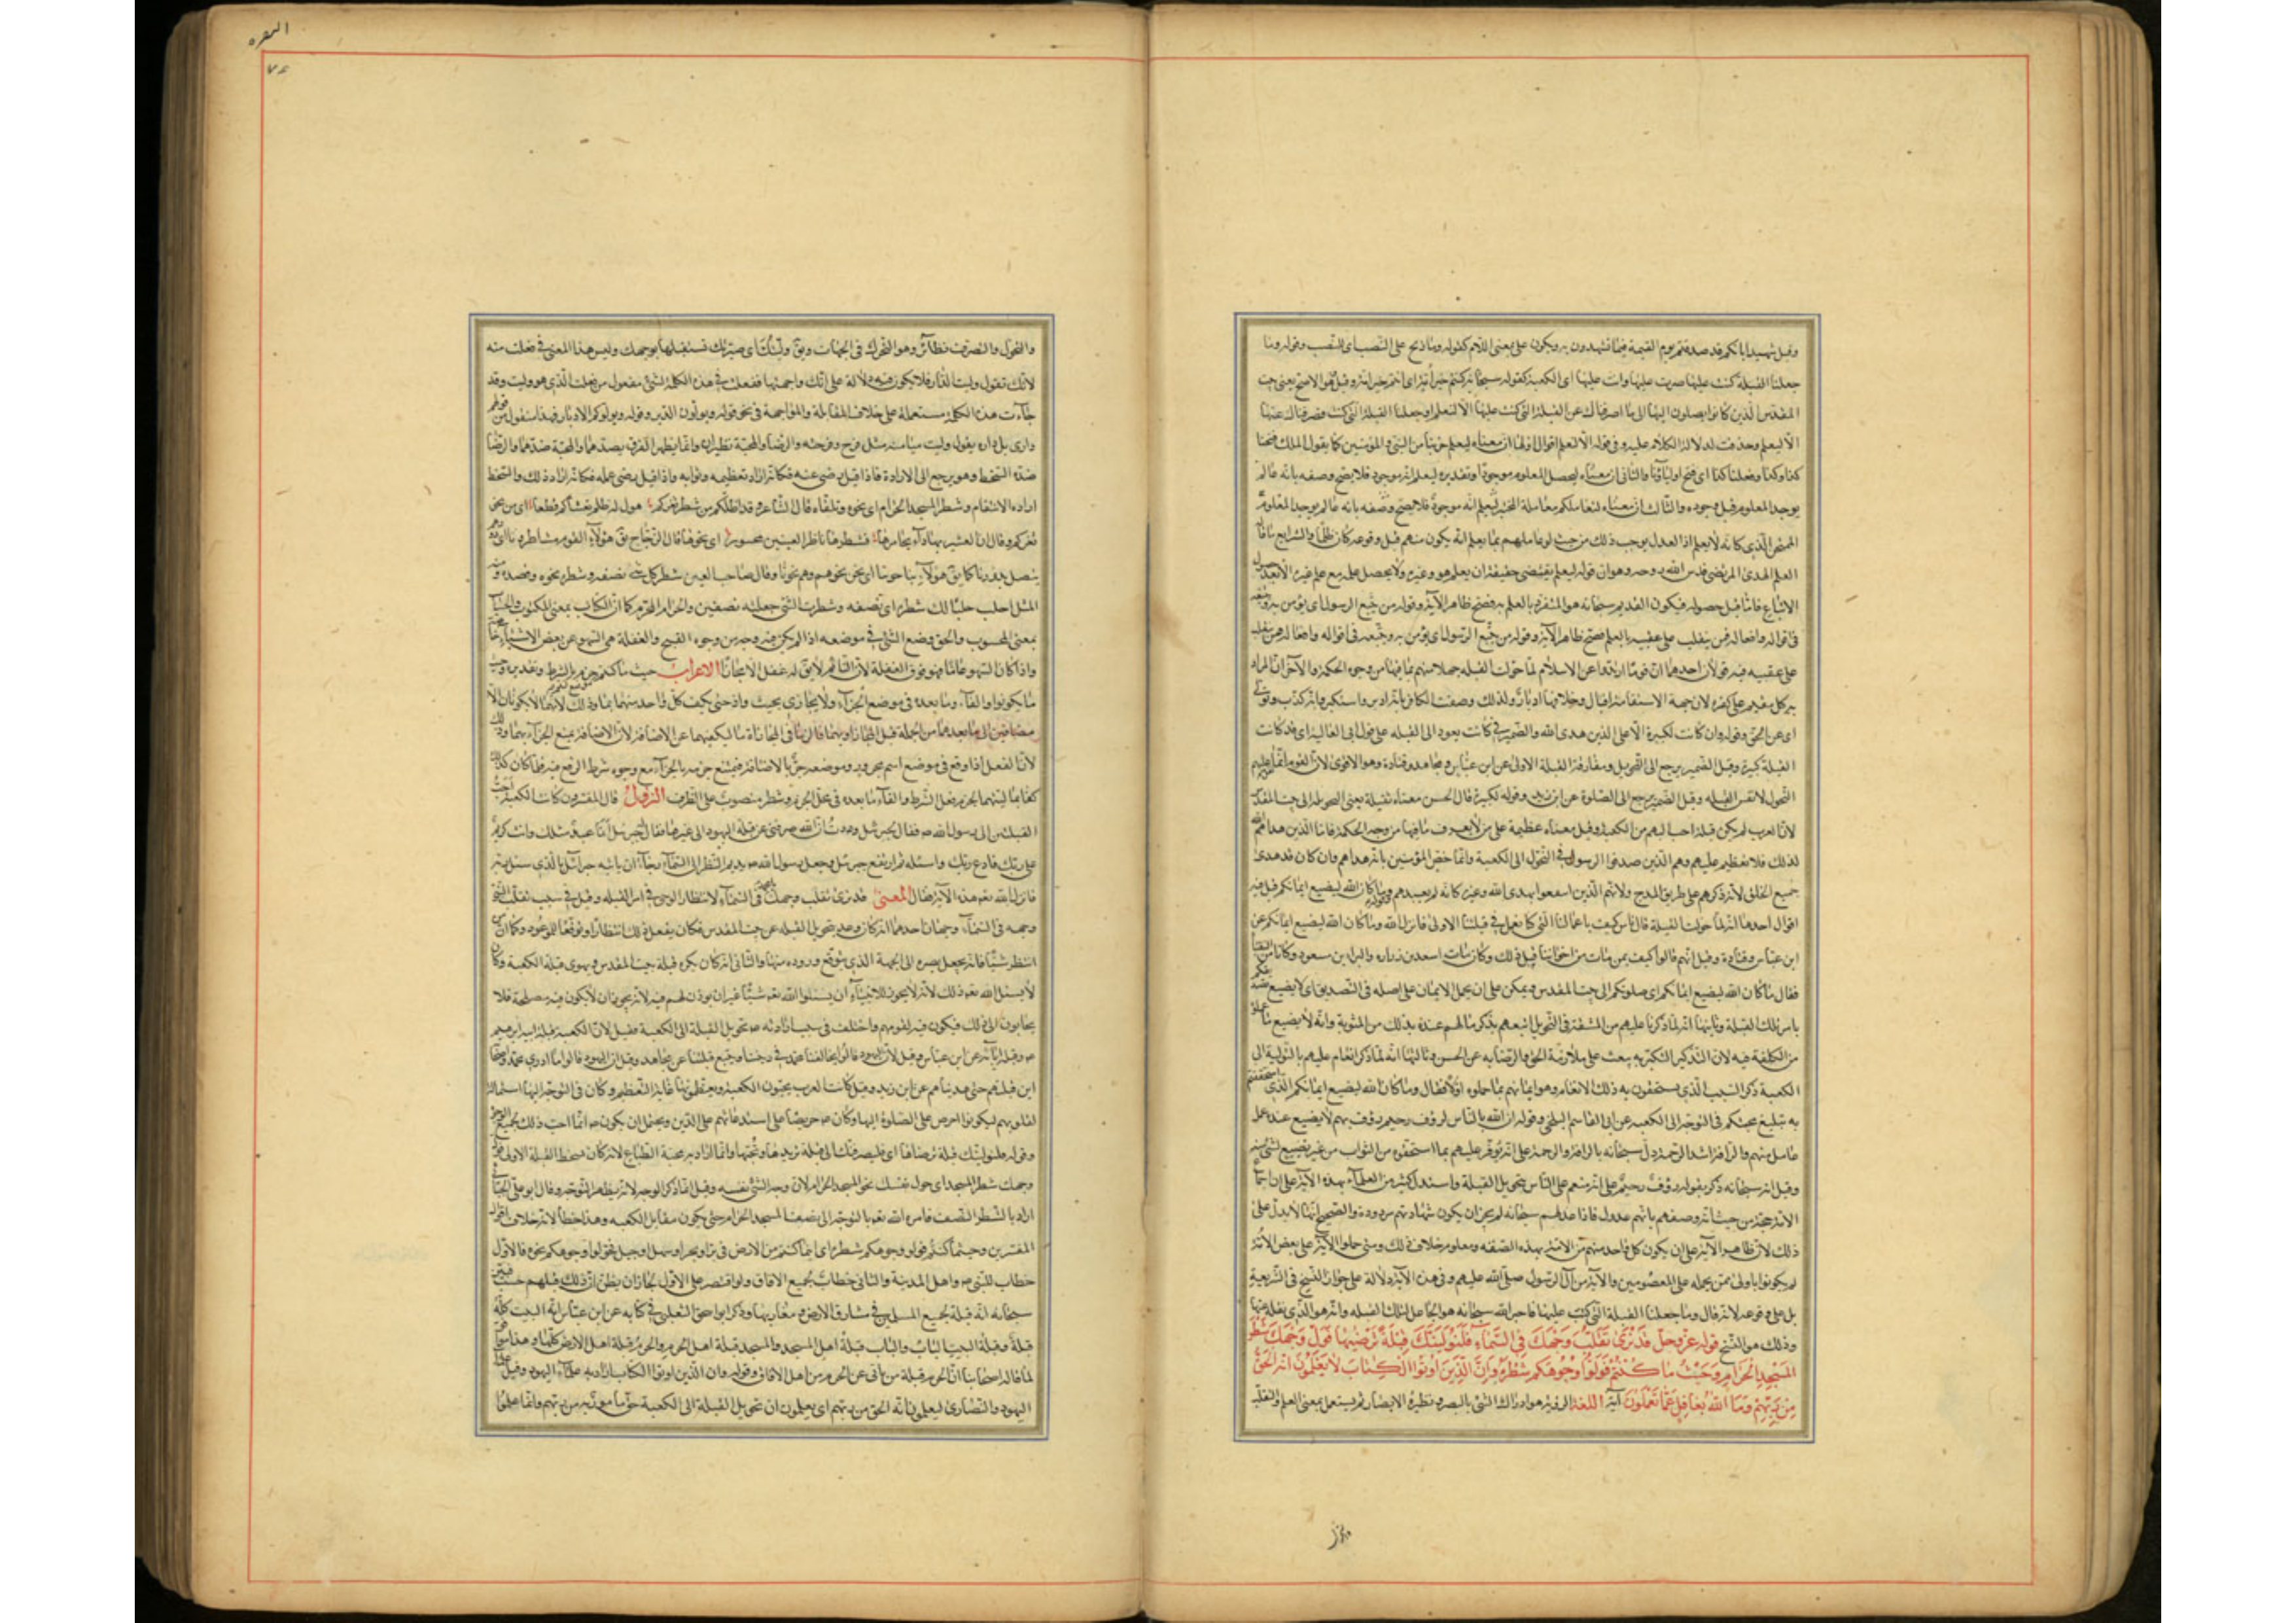 وقيل شهيدا بانكم قد صدقتم يوم القيمة فيما تشهدون به ويكون على بمعنى اللام كقوله وما ذبح على النصب اى للنصب وقوله وما
جعلنا القبلة التى كنت عليها صرت عليها وانت عليها اى الكعبة كقوله سبحانه كنتم خير امة اى انتم خير امة وقيل هو الاصح يعنى بيت
المقدس الذين كانوا يصلون اليها الى ما اصرفناك عن القبلة التى كنت عليها الا لنعلم او جعلنا القبلة التى كنت فصرفناك عنها
الا ليعلم وحذفت لدلالة الكلام عليه وفى قوله الا لنعلم اقوال اولها ان معناه ليعلم حزبنا من النبى والمؤمنين كما يقول الملك فتحنا
كذا وكذا وفعلنا كذا اى فتح اولياؤنا والثانى ان معناه ليحصل المعلوم موجودا وتقديره ليعلم انه موجود فلا يصح وصفه بانه عالم
بوجود المعلوم قبل وجوده والثالث ان معناه لنعاملكم معاملة المختبر ليعلم انه موجود فلا يصح وصفه بانه عالم بوجود المعلوم
الممتحن الذى كانه لا يعلم اذ العدل يوجب ذلك من حيث لو عاملهم بما يعلم انه يكون منهم قبل وقوعه كان ظلما والرابع ما قاله
العلم الهدى المرتضى قدس الله روحه وهو ان قوله ليعلم يقتضى حقيقة ان يعلم هو وغيره ولا يحصل علمه مع علم غيره الا بعد حصول
الاتباع فاما قبل حصوله فيكون القديم سبحانه هو المتفرد بالعلم به فصح ظاهر الآية وقوله من يتبع الرسول اى يؤمن به ويتبعه
فى اقواله وافعاله فمن ينقلب على عقبيه
على عقبيه فيه قولان احدهما ان قوما ارتدوا عن الاسلام لما حولت القبلة جهلا منهم بما فيها من وجوه الحكمة والآخر ان المراد
به كل مقيم على كفره لان جهة الاستقامة اقبال وخلافها ادبار ولذلك وصف الكافر بانه ادبر واستكبر وانه كذب وتولى
اى عن الحق وقوله وان كانت لكبيرة الا على الذين هدى الله والضمير فى كانت يعود الى القبلة على قول ابى العالية اى قد كانت
القبلة كبيرة وقيل الضمير يرجع الى التحويل ومفارقة القبلة الاولى عن ابن عباس ومجاهد وقتادة وهو الاقوى لان القوم انما ثقل عليهم
التحول لا نفس القبلة وقيل الضمير يرجع الى الصلوة عن ابن زيد وقوله لكبيرة قال الحسن معناه ثقيلة يعنى التحويلة الى بيت المقدس
لان العرب لم يكن قبلة احب اليهم من الكعبة وقيل معناه عظيمة على من لا يعرف ما فيها من وجه الحكمة فاما الذين هداهم الله
لذلك فلا تعظم عليهم وهم الذين صدقوا الرسول فى التحول الى الكعبة وانما خص المؤمنين بانه هداهم وان كان قد هدى
جميع الخلق لانه ذكرهم على طريق المدح ولانهم الذين انتفعوا بهدى الله وغيرهم كانه لم يعتد بهم وقوله وما كان الله ليضيع ايمانكم قيل فيه
اقوال احدها انه لما حولت القبلة قال ناس كيف باعمالنا التى كنا نعمل فى قبلتنا الاولى فانزل الله وما كان الله ليضيع ايمانكم عن
ابن عباس وقتادة وقيل انهم قالوا كيف بمن مات من اخواننا قبل ذلك وكان مات اسعد بن زرارة والبراء بن معرور وكانا من النقباء
فقال ما كان الله ليضيع ايمانكم اى صلوتكم الى بيت المقدس ويمكن على ان يحمل الايمان على اصله فى التصديق اى لا يضيع تصديقكم
بامر تلك القبلة وثانيها انه لما ذكر ما عليهم من المشقة فى التحويل اتبعهم بذكر ما لهم عنده بذلك من المثوبة وانه لا يضيع ما عملوه
من الكلفة فيه لان التذكير به يبعث على ملازمة الحق والرضا به عن الحسن وثالثها انه لما ذكر انعامه عليهم بالتولية الى
الكعبة ذكر السبب الذى يستحقون به ذلك الانعام وهو ايمانهم بما حملوه اولا فقال وما كان الله ليضيع ايمانكم الذى استحققتم
به تبليغ محبتكم فى التوجه الى الكعبة عن ابى القاسم البلخى وقوله ان الله بالناس لرؤف رحيم رؤف بهم لا يضيع عنده عمل
عامل منهم والرأفة اشد الرحمة دل سبحانه بالرأفة والرحمة على انه يوفر عليهم بما استحقوه من الثواب من غير تضييع لشئ منه
وقيل انه سبحانه ذكر بقوله رؤف رحيم على انه منعم على الناس بتحويل القبلة واستدل كثير من العلماء بهذه الآية على ان اجماع
الامة حجة من حيث انه وصفهم بانهم عدول فاذا عدلهم سبحانه لم يجز ان يكون شهادتهم مردودة والصحيح انها لا يدل على
ذلك لان ظاهر الآية على ان يكون كل واحد منهم من الامة بهذه الصفة ومعلوم خلاف ذلك ومتى حملوا الآية على بعض الامة
لم يكونوا باولى ممن يحمله على المعصومين والائمة من آل الرسول صلى الله عليهم وفى هذه الآية دلالة على جواز النسخ فى الشريعة
بل على وقوعه لانه قال وما جعلنا القبلة التى كنت عليها فاخبر الله سبحانه هو الجاعل لتلك القبلة وانه هو الذى نقله عنها
وذلك هو النسخ قوله عز وجل قد نرى تقلب وجهك فى السماء فلنولينك قبلة ترضيها فول وجهك شطر
المسجد الحرام وحيث ما كنتم فولوا وجوهكم شطره وان الذين اوتوا الكتاب لا يعلمون انه الحق
من ربهم وما الله بغافل عما تعملون آية اللغة الرؤية هو ادراك الشئ بالبصر ونظيره الابصار ثم يستعمل بمعنى العلم والتقلب
والتحول
البقره
٧٤
والتحول والتصرف نظائر وهو التحرك فى الجهات ويق وليتك اى صيرتك تستقبلها بوجهك وليس هذا المعنى فى فعلت منه
لانك تقول وليت الدار فلا يكون فيه دلالة على انك واجهتها ففعلت فى هذه الكلمة ليس مفعول من فعلت الذى هو وليت وقد
جاءت هذه الكلمة مستعملة على خلاف المقابلة والمواجهة فى نحو قوله ويولون الدبر وقوله يولوكم الادبار فهذا منقول من قولهم
دارى يلى داره يقول وليت ميامنه مثل فرح وفرحته والرضا والمحبة نظيران وانما يظهر الفرق بضديهما والمحبة ضدها والرضا
ضده السخط وهو يرجع الى الارادة فاذا قيل رضى عنه فكانه اراد تعظيمه وثوابه واذا قيل رضى عمله فكانه اراد ذلك والسخط
ارادة الانتقام وشطر المسجد الحرام اى نحوه وتلقاءه قال الشاعر وقد اظلكم من شطر ثغركم هول له ظلم يغشاكم قطعا اى من نحو
ثغركم وقال ان العشير بها داء يخامرها فشطرها ناظر العينين محسور اى نحوها قال الزجاج يق هؤلاء القوم مشاطرونا اى دورهم
يتصل بدورنا كما يق هؤلاء يناحوننا اى نحن نحوهم وهم نحونا وقال صاحب العين شطر كل شئ نصفه وشطره نحوه وقصده ومنه
المثل احلب حلبا لك شطره اى نصفه وشطرت الشئ جعلته نصفين والحرام المحرم كما ان الكتاب بمعنى المكتوب والحساب
بمعنى المحسوب والحق وضع الشئ فى موضعه اذا لم يكن فيه وجه من وجوه القبح والغفلة هى السهو عن بعض الاشياء خاصة
واذا كان السهو عاما فهو فوق الغفلة لان النائم لا يق له غفل الا مجازا الاعراب حيث ما كنتم جزم بالشرط وتقديره وحيث
ما يكونوا والفاء وما بعده فى موضع الجزاء ولا يجازى بحيث واذ حتى يكف كل واحد منهما بما وذلك لانهما لا يكونان الا
مضافين الى ما بعدهما من الجملة قبل المجازاة بهما فالزما فى المجازاة ما ليكفيهما عن الاضافة لان الاضافة يمنع الجزاء بهما وذلك
لان الفعل اذا وقع فى موضع اسم مجرور وموضعه جر بالاضافة فيمتنع جزمه بالجزاء مع وجوه شرط الرفع فيه فلما كان كذلك
كفا بما ليتهما لجزم فعل الشرط والفاء ما بعده فى محل الجزم وشطر منصوب على الظرف النزول قال المفسرون كانت الكعبة احب
القبلتين الى رسول الله ص فقال لجبرئيل وددت ان الله صرفنى عن قبلة اليهود الى غيرها فقال جبرئيل انا عبد مثلك وانت كريم
على ربك فادع ربك واسئله ثم ارتفع جبرئيل وجعل رسول الله ص يديم النظر الى السماء رجاء ان ياتيه جبرائيل بالذى سئل ربه
فانزل الله تع هذه الآية فقال المعنى قد نرى تقلب وجهك فى السماء لانتظار الوحى فى امر القبلة وقيل فى سبب تقلب النبى
وجهه فى السماء وجهان احدهما انه كان وعد بتحويل القبلة عن بيت المقدس فكان يفعل ذلك انتظارا وتوقعا للموعود وكما ان من
انتظر شيئا فانه يجعل بصره الى الجهة الذى يتوقع وروده منها والثانى انه كان يكره قبلة بيت المقدس ويهوى قبلة الكعبة وكان
لا يسئل الله تع ذلك لانه لا يجوز للانبياء ان يسئلوا الله تع شيئا غير ان يوذن لهم فيه لانه يجوز ان لا يكون فيه مصلحة فلا
يجابون الى ذلك فيكون فيه لقومهم واختلف فى سبب ارادته ص تحويل القبلة الى الكعبة فقيل لان الكعبة قبلة ابيه ابرهيم
ص وقبلة آبائه عن ابن عباس وقيل لان اليهود قالوا يخالفنا محمد فى ديننا ويتبع قبلتنا عن مجاهد وقيل ان اليهود قالوا ما ادرى محمد واصحابه
اين قبلتهم حتى هديناهم عن ابن زيد وقيل كانت العرب يحبون الكعبة ويعظمونها غاية التعظيم وكان فى التوجه اليها استمالة
لقلوبهم ليكونوا احرص على الصلوة اليها وكان ص حريصا على استدعائهم على الدين ويحتمل ان يكون ص انما احب ذلك لجميع الوجوه
وقوله فلنولينك قبلة ترضاها اى فليصرفنك الى قبلة تريدها وتحبها وانما اراد به محبة الطباع لانه كان سخط القبلة الاولى فول
وجهك شطر المسجد اى حول نفسك نحو المسجد الحرام لان وجه الشئ نفسه وقيل انما ذكر الوجه لانه به يظهر التوجه وقال ابو على الجبائى
اراد بالشطر النصف فامره الله تع بالتوجه الى نصف المسجد الحرام حتى يكون مقابل الكعبة وهذا خطأ لانه خلاف اقوال
المفسرين وحيثما كنتم فولوا وجوهكم شطره اى اينما كنتم من الارض فى بر او بحر او سهل او جبل فحولوا وجوهكم نحوه فالاول
خطاب للنبى ص واهل المدينة والثانى خطاب لجميع الافاق ولو اقتصر على الاول لجاز ان يظن ان ذلك قبلهم حسب فبين
سبحانه انه قبلة لجميع المسلمين فى مشارق الارض ومغاربها وذكر ابو اسحق الثعلبى فى كتابه عن ابن عباس انه البيت كله
قبلة وقبلة البيت الباب والباب قبلة اهل المسجد والمسجد قبلة اهل الحرم والحرم قبلة اهل الارض كلها وهذا موافق
لما قاله اصحابنا ان الحرم قبلة من نأى عن الحرم من اهل الافاق وقوله وان الذين اوتوا الكتاب اراد به علماء اليهود وقيل علماء
اليهود والنصارى ليعلمون انه الحق من ربهم اى يعلمون ان تحويل القبلة الى الكعبة حق مامور به من ربهم وانما علموا